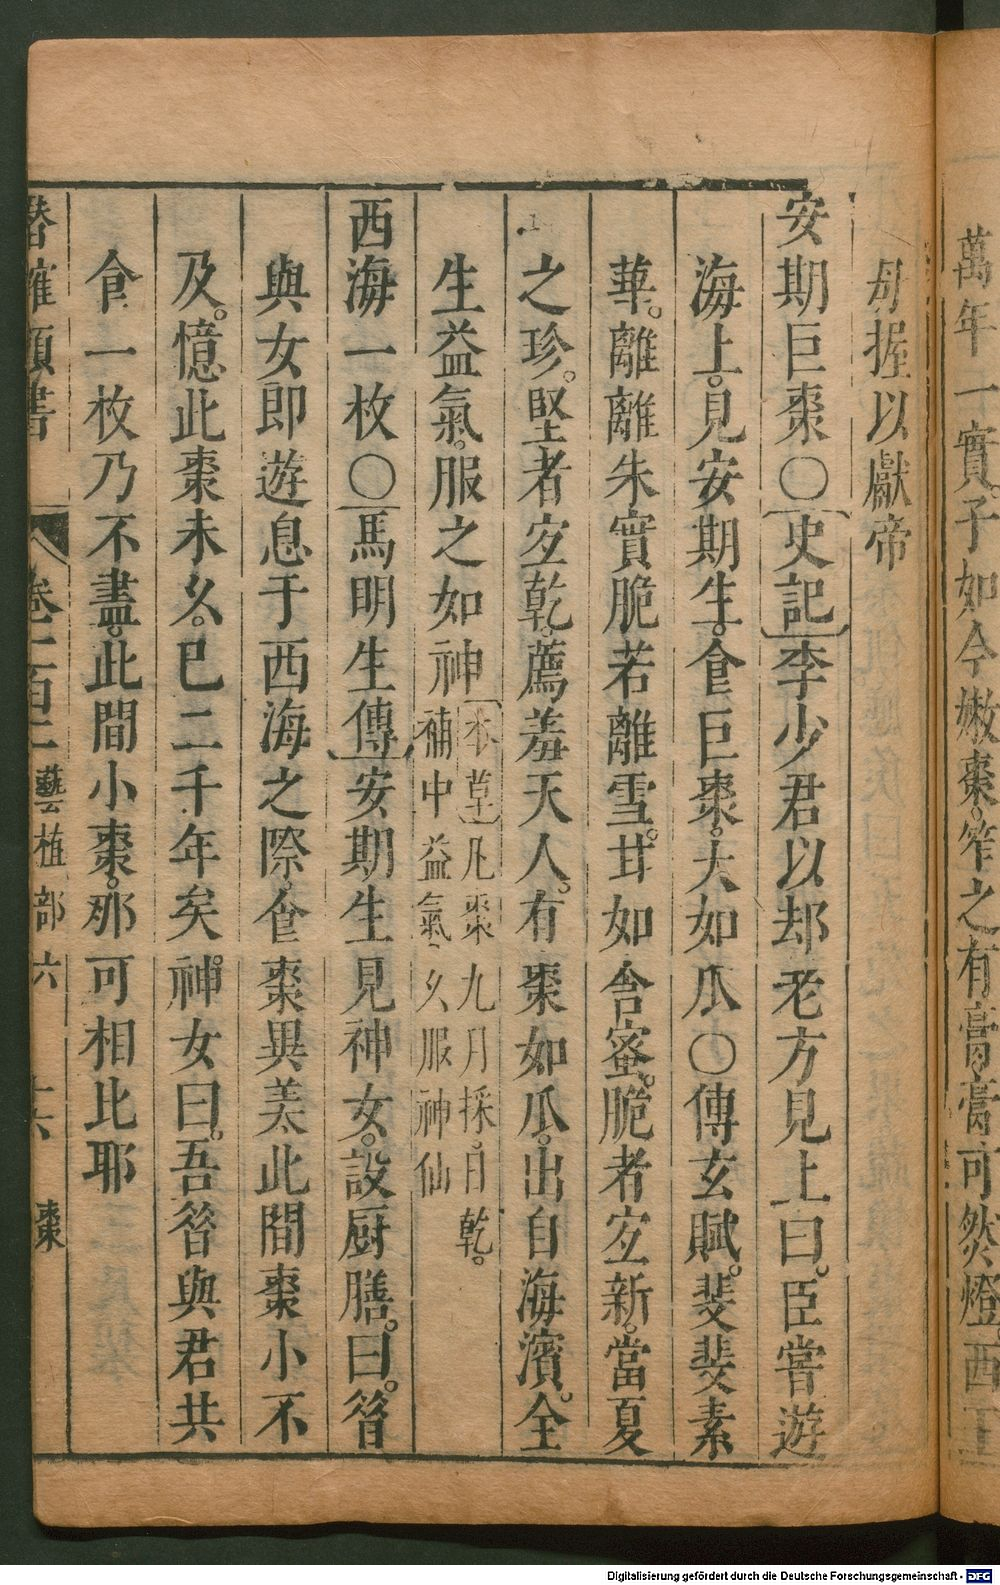 萬年一實子如今嫩棗笮之有膏膏可然燈西王
母握以獻帝
安期巨棗〇史記李少君以却老方見上曰臣嘗遊
海上見安期生食巨棗大如瓜〇傳玄賦斐斐素
華離離朱實脆若離雪甘如含蜜脆者宜新當夏
之珍堅者宜乾薦羞天人有棗如瓜出自海濱全
生益氣服之如神本草凡棗九月採日乾
補中益氣久服神仙
西海一枚〇馬明生傳安期生見神女設厨膳曰昝
與女即遊息于西海之際食棗異美此間棗小不
及憶此棗未久已二千年矣神女曰吾昝與君共
食一枚乃不盡此間小棗那可相比耶
潛確類書 卷一百二 藝植部六 十六 棗
Digitalisierung gefördert durch die Deutsche Forschungsgemeinschaft - DFG